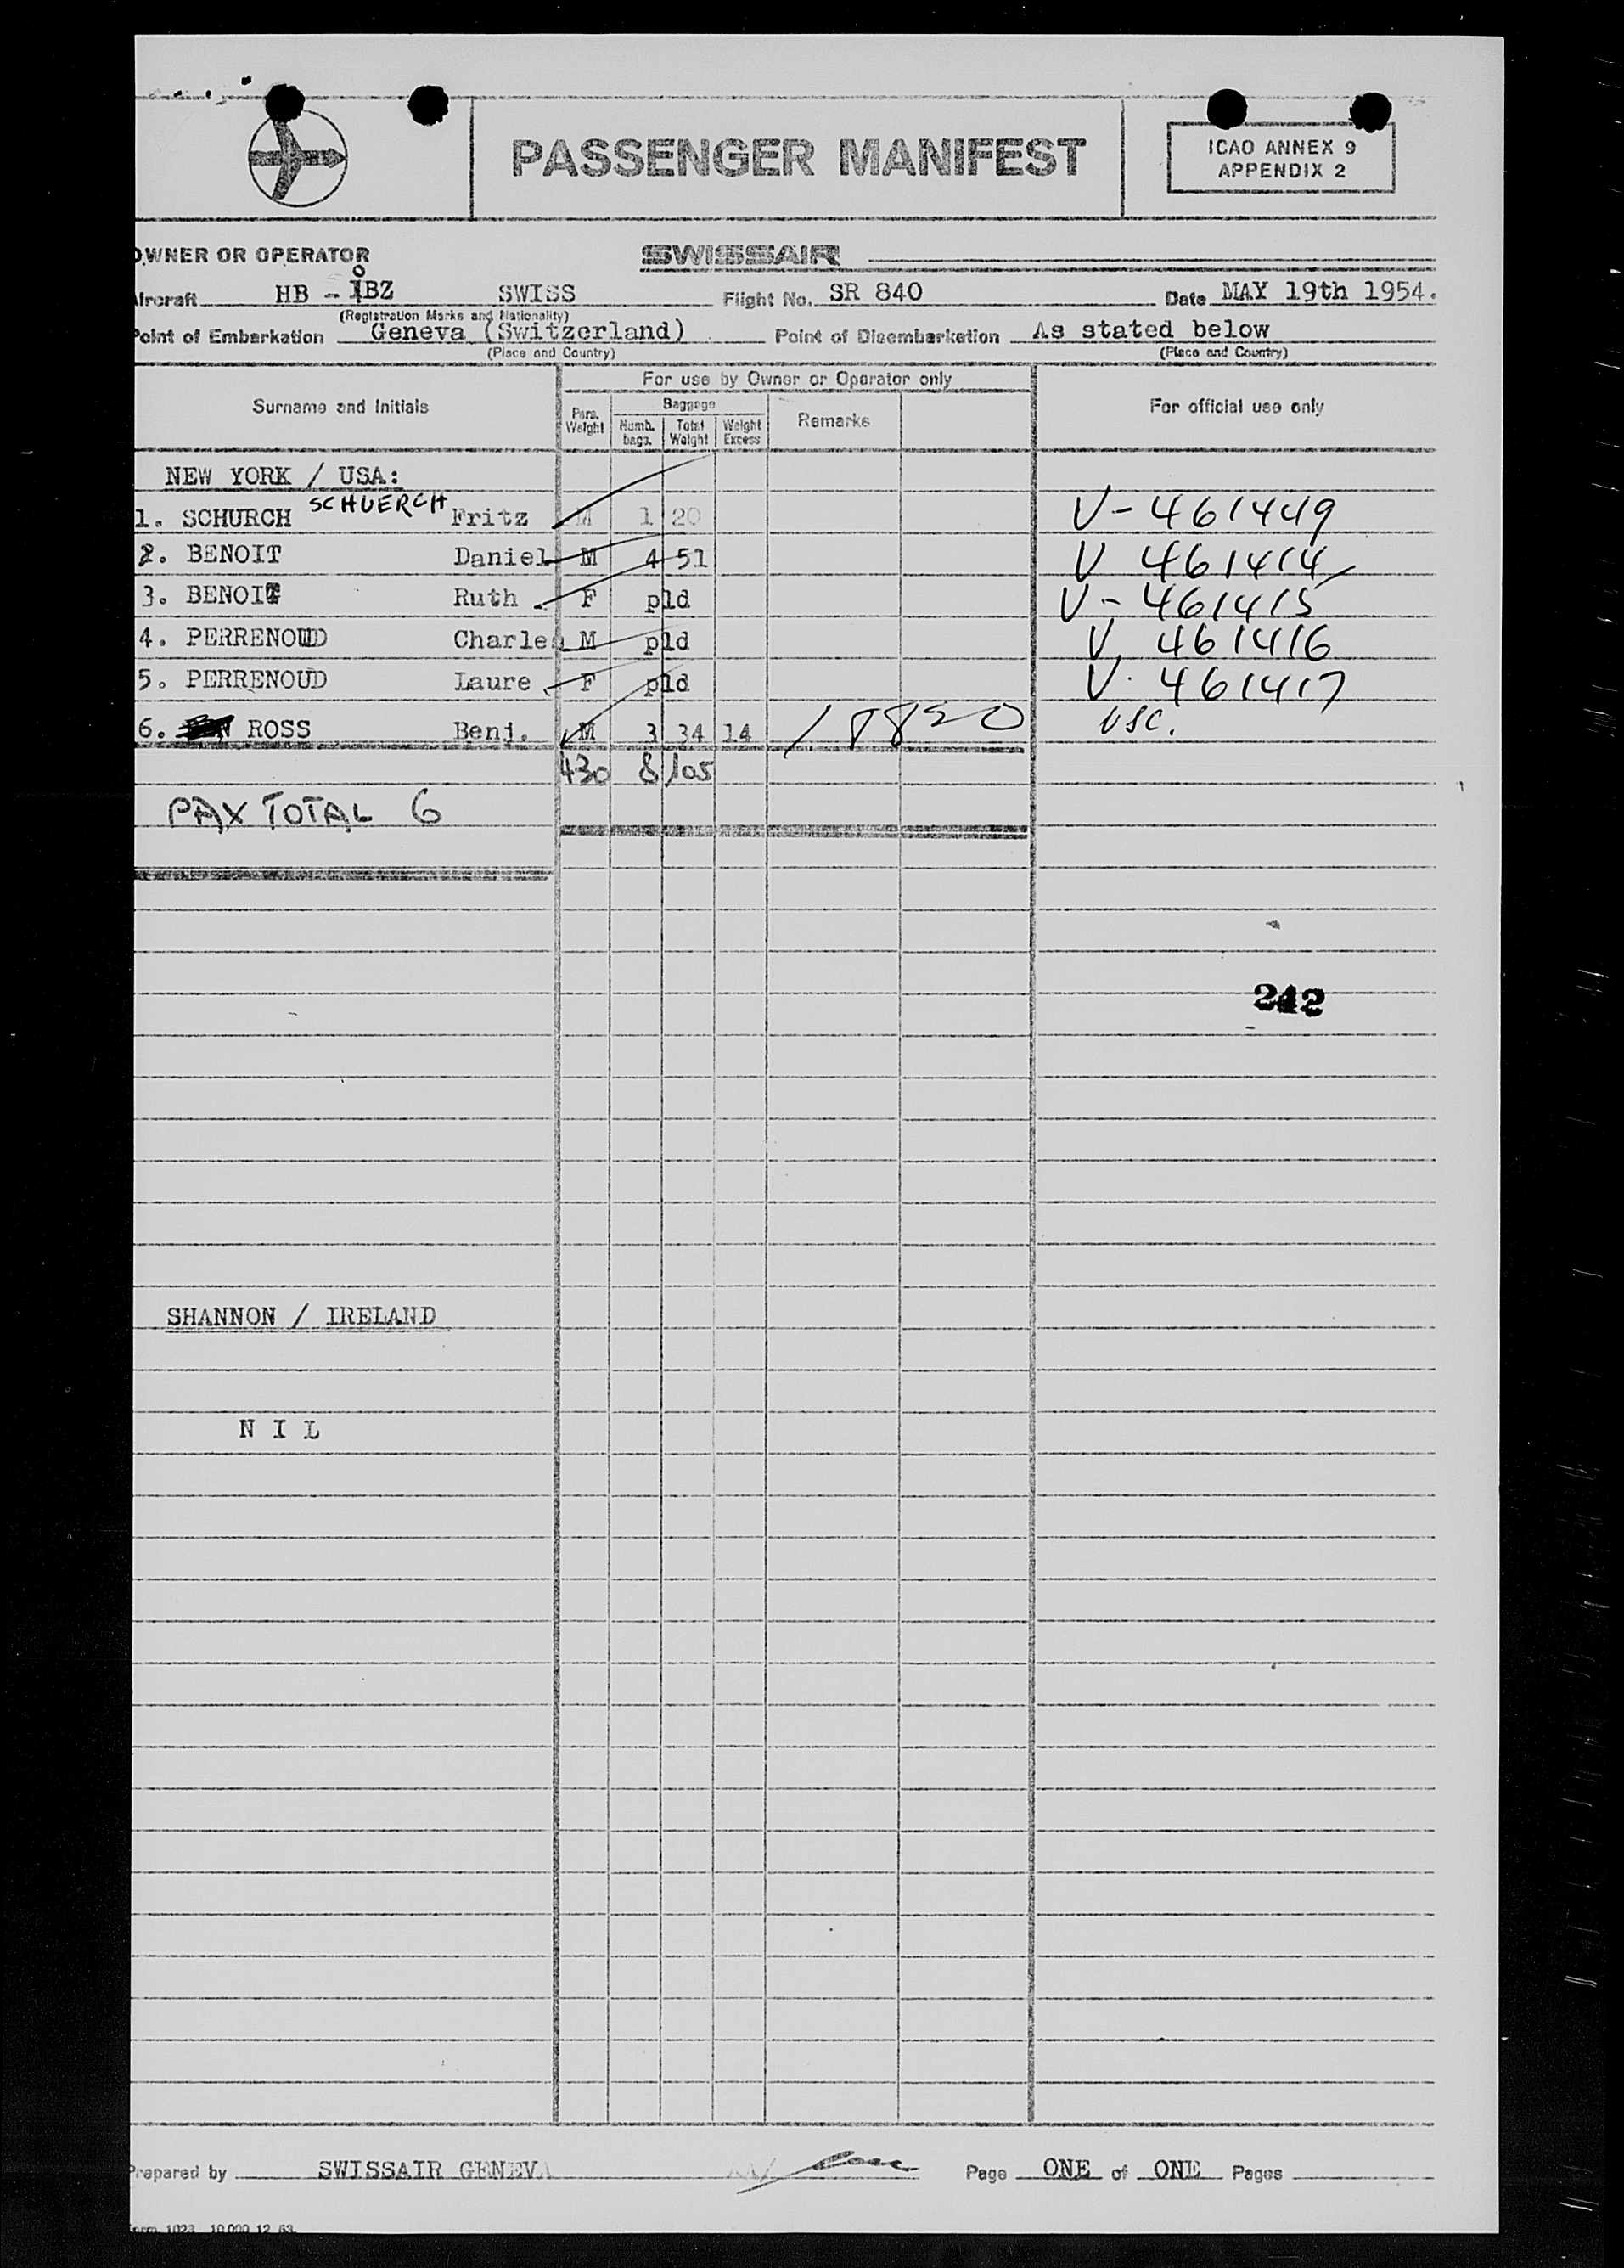 PASSENGER MANIFEST
ICAO ANNEX 9
APPENDIX 2
OWNER OR OPERATOR SWISSAIR
Aircraft HB - IBZ SWISS Flight No. SR 840 Date MAY 19th 1954.
(Registration Marks and Nationality)
Point of Embarkation Geneva (Switzerland) Point of Disembarkation As stated below
(Place and Country) (Place and Country)
For use by Owner or Operator only
Surname and Initials Pers. Weight Baggage Numb. bags. Total Weight Weight Excess Remarks For official use only
NEW YORK / USA:
1. SCHURCH SCHUERCH Fritz M 1 20 V-461449
2. BENOIT Daniel M 4 51 V 461414
3. BENOIT Ruth F pld V-461415
4. PERRENOUD Charles M pld V. 461416
5. PERRENOUD Laure F pld V. 461417
6. ROSS Benj. M 3 34 14 USC.
430 8 105
PAX TOTAL 6
242
SHANNON / IRELAND
N I L
Prepared by SWISSAIR GENEVA Page ONE of ONE Pages